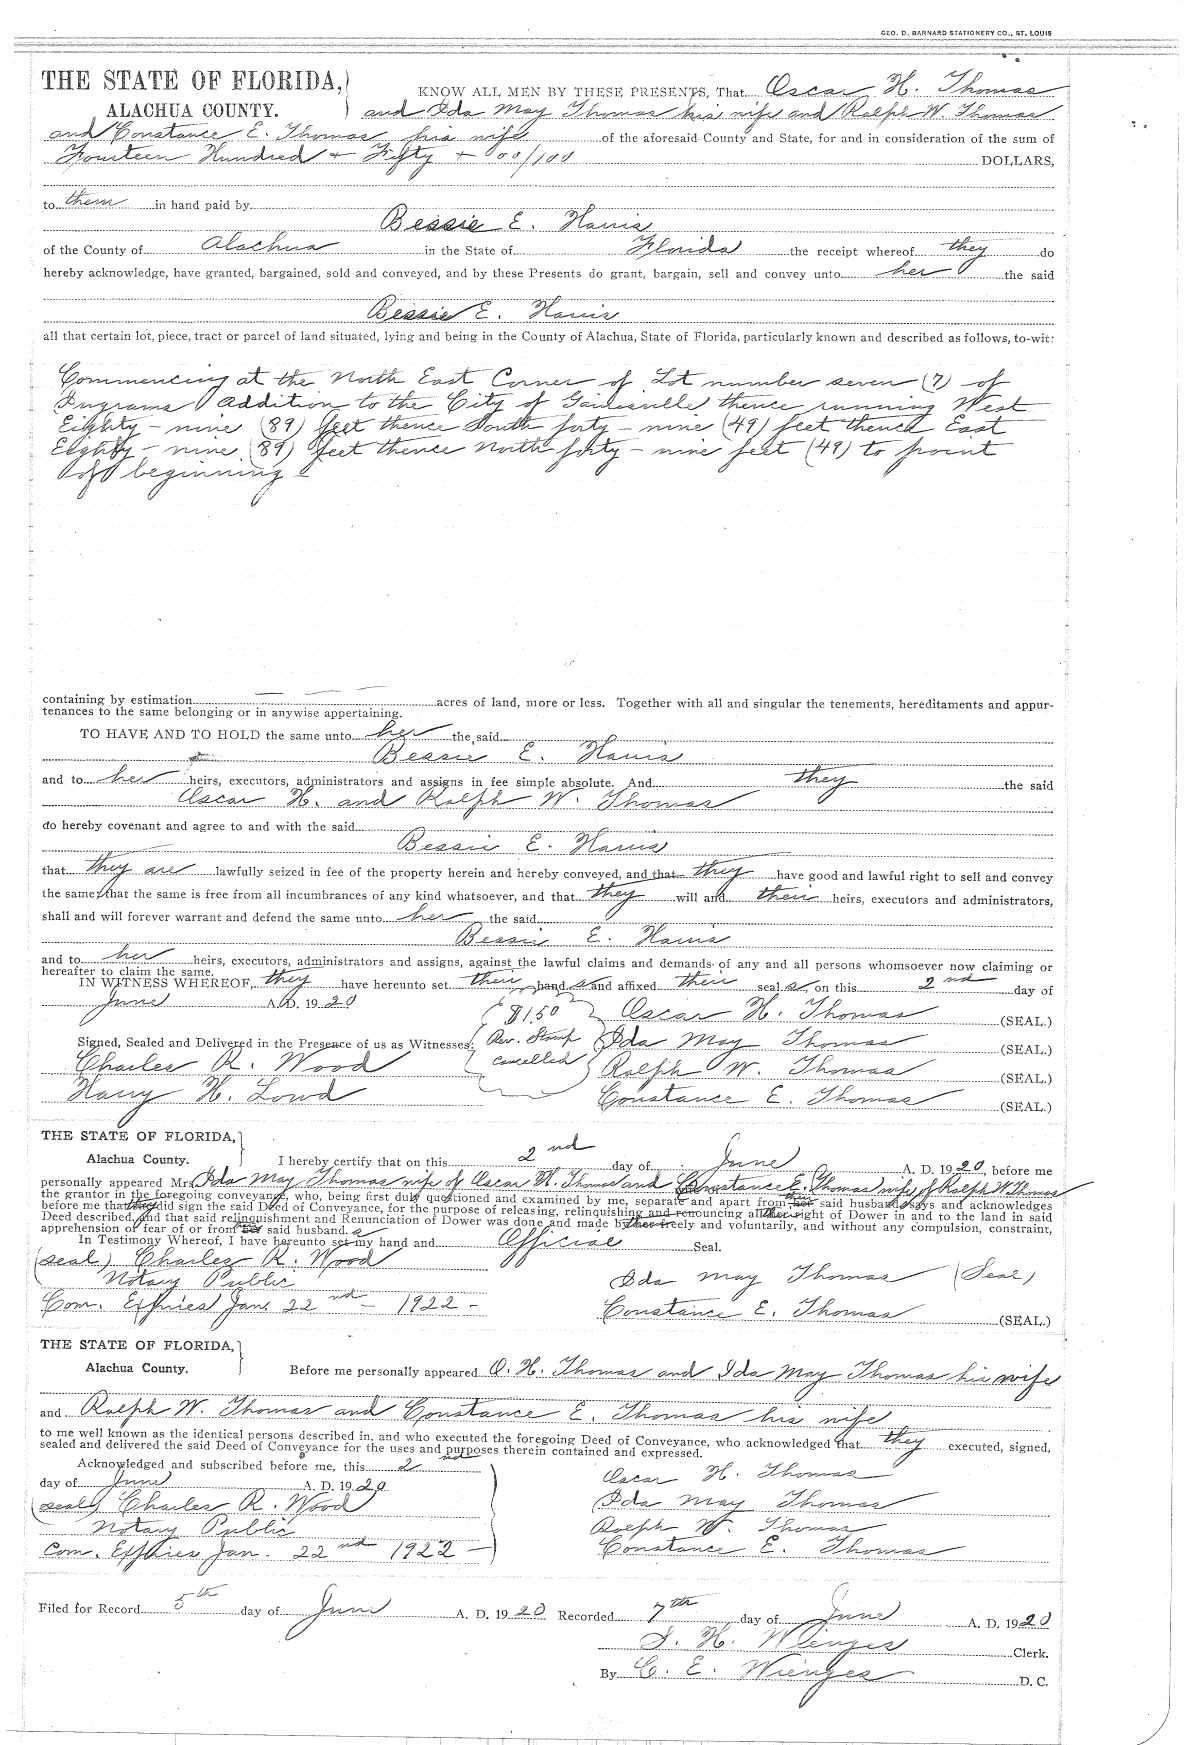 GEO. D. BARNARD STATIONERY CO., ST. LOUIS
THE STATE OF FLORIDA,
KNOW ALL MEN BY THESE PRESENTS, That Oscar H. Thomas
ALACHUA COUNTY.
and Ida May Thomas his wife and Ralph W. Thomas
and Constance E. Thomas his wife of the aforesaid County and State, for and in consideration of the sum of
Fourteen Hundred + Fifty + 00/100 DOLLARS,
to them in hand paid by
Bessie E. Harris
of the County of Alachua in the State of Florida the receipt whereof they do
hereby acknowledge, have granted, bargained, sold and conveyed, and by these Presents do grant, bargain, sell and convey unto her the said
Bessie E. Harris
all that certain lot, piece, tract or parcel of land situated, lying and being in the County of Alachua, State of Florida, particularly known and described as follows, to-wit:
Commencing at the North East Corner of Lot number seven (7) of
Ingrams Addition to the City of Gainesville thence running West
Eighty-nine (89) feet thence South forty-nine (49) feet thence East
Eighty-nine (89) feet thence North forty-nine feet (49) to point
of beginning -
containing by estimation acres of land, more or less. Together with all and singular the tenements, hereditaments and appur-
tenances to the same belonging or in anywise appertaining.
TO HAVE AND TO HOLD the same unto her the said
Bessie E. Harris
and to her heirs, executors, administrators and assigns in fee simple absolute. And they the said
Oscar H. and Ralph W. Thomas
do hereby covenant and agree to and with the said
Bessie E. Harris
that they are lawfully seized in fee of the property herein and hereby conveyed, and that they have good and lawful right to sell and convey
the same, that the same is free from all incumbrances of any kind whatsoever, and that they will and their heirs, executors and administrators,
shall and will forever warrant and defend the same unto her the said
Bessie E. Harris
and to her heirs, executors, administrators and assigns, against the lawful claims and demands of any and all persons whomsoever now claiming or
hereafter to claim the same.
IN WITNESS WHEREOF, they have hereunto set their hand s and affixed their seal s, on this 2nd day of
June A. D. 1920
$1.50 Oscar H. Thomas (SEAL.)
Signed, Sealed and Delivered in the Presence of us as Witnesses: Rev. Stamp Ida May Thomas (SEAL.)
Charles R. Wood cancelled Ralph W. Thomas (SEAL.)
Harry H. Lowd Constance E. Thomas (SEAL.)
THE STATE OF FLORIDA,
Alachua County. I hereby certify that on this 2nd day of June A. D. 1920, before me
personally appeared Mrs. Ida May Thomas wife of Oscar H. Thomas and Constance E. Thomas wife of Ralph W Thomas
the grantor in the foregoing conveyance, who, being first duly questioned and examined by me, separate and apart from her said husband s says and acknowledges
before me that they did sign the said Deed of Conveyance, for the purpose of releasing, relinquishing and renouncing all their right of Dower in and to the land in said
Deed described, and that said relinquishment and Renunciation of Dower was done and made by freely and voluntarily, and without any compulsion, constraint,
apprehension or fear of or from said husband.s
In Testimony Whereof, I have hereunto set my hand and Official Seal.
(seal) Charles R. Wood
Notary Public Ida May Thomas (Seal)
Com. Expires Jan 22nd - 1922 - Constance E. Thomas (SEAL.)
THE STATE OF FLORIDA,
Alachua County. Before me personally appeared O. H. Thomas and Ida May Thomas his wife
and Ralph W. Thomas and Constance E. Thomas his wife
to me well known as the identical persons described in, and who executed the foregoing Deed of Conveyance, who acknowledged that they executed, signed,
sealed and delivered the said Deed of Conveyance for the uses and purposes therein contained and expressed.
Acknowledged and subscribed before me, this 2nd Oscar H. Thomas
day of June A. D. 1920
(seal) Charles R. Wood Ida May Thomas
Notary Public Ralph W. Thomas
Com. Expires Jan. 22nd 1922 - Constance E. Thomas
Filed for Record 5th day of June A. D. 1920 Recorded 7th day of June A. D. 1920
S. H. Wienges Clerk.
By C. E. Wienges D. C.